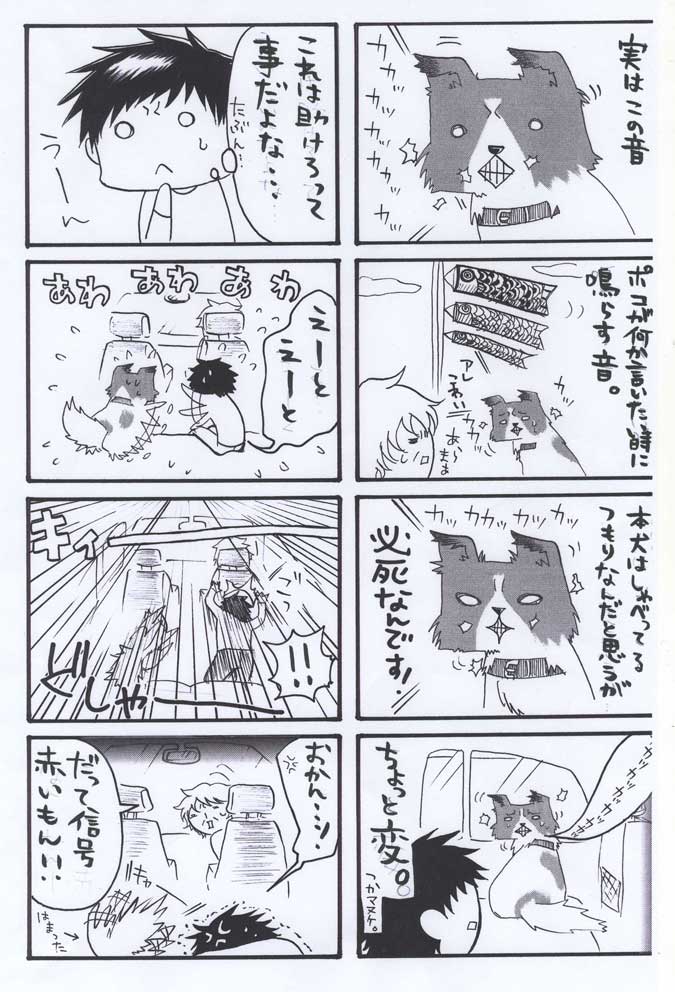 実はこの音
カカッ
カカカカカカッ
ポコが何か言いた時に
鳴らす音。
アレ
こわい
あらまぁ
本犬はしゃべってる
つもりなんだと思うが
カッ
カッ
カカッ
カッ
必死なんです!
ちょっと変。
つかマヌケ。
これは助けろって
事だよな…
たぶん…
うーん
あわ
あわ
あわ
えーと
えーと
キィ
!!
どしゃー
おかんーッ!
だって信号
赤いもん!!
キャ
はまった